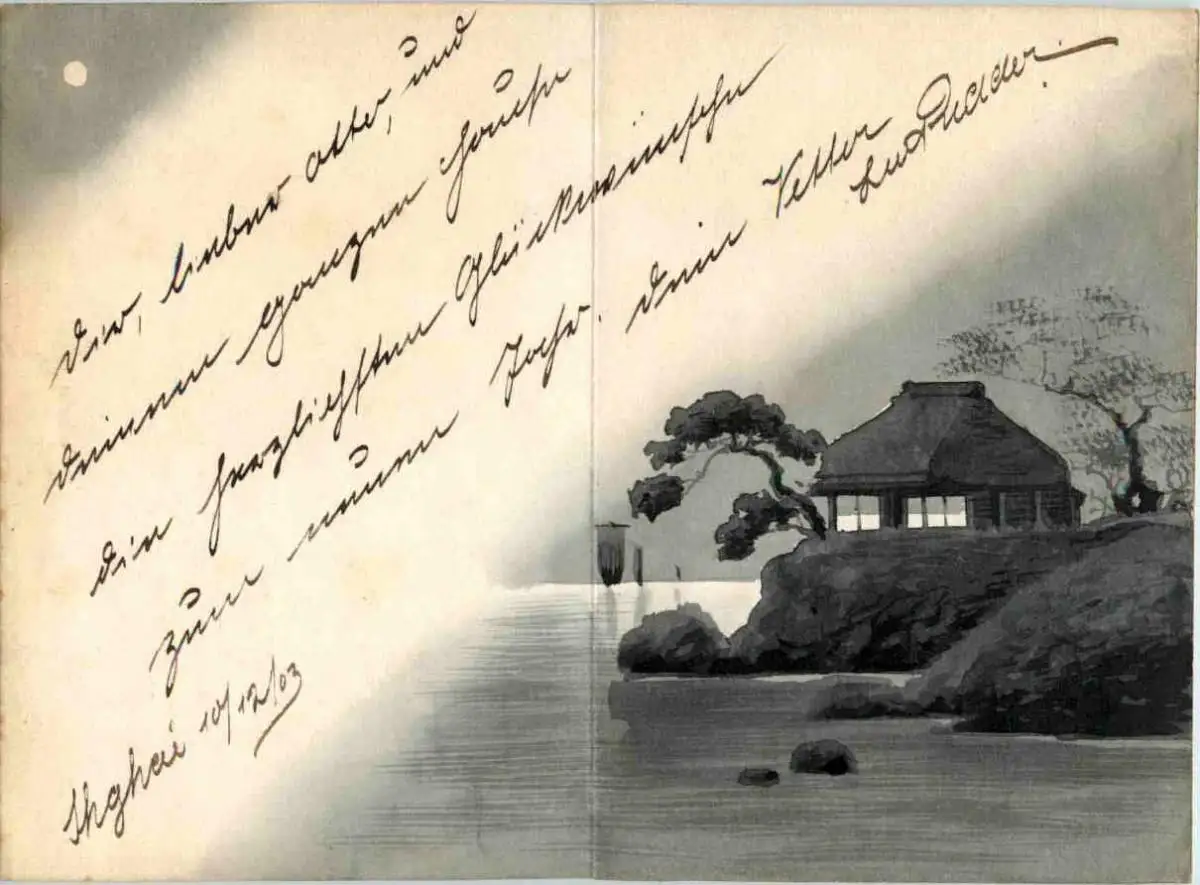 Dir, lieber Otto, und
deinem ganzen Hause
die herzlichsten Glückwünsche
zum neuen Jahr. Dein Vetter
Shghai 10/12/03